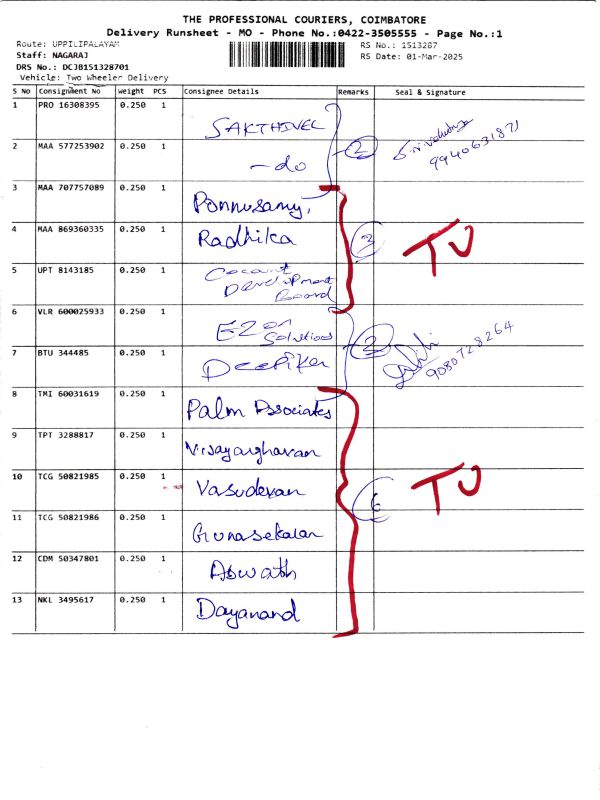 THE PROFESSIONAL COURIERS, COIMBATORE
Delivery Runsheet - MO - Phone No.:0422-3505555 - Page No.:1
Route: UPPILIPALAYAM
RS No.: 1513287
Staff: NAGARAJ
RS Date: 01-Mar-2025
DRS No.: DCJB151328701
Vehicle: Two Wheeler Delivery
S No Consignment No Weight PCS Consignee Details Remarks Seal & Signature
1 PRO 16308395 0.250 1 SAKTHIVEL
2 MAA 577253902 0.250 1 - do 2
9940631871
3 MAA 707757089 0.250 1 Ponnusamy,
4 MAA 869360335 0.250 1 Radhika 3 TU
5 UPT 8143185 0.250 1 Coconut
Development
Board
6 VLR 600025933 0.250 1 EZon
Solutions
7 BTU 344485 0.250 1 Deepika 2 9080728264
8 TMI 60031619 0.250 1 Palm Associates
9 TPT 3288817 0.250 1 Vijayarghavan
10 TCG 50821985 0.250 1 Vasudevan 6 TU
11 TCG 50821986 0.250 1 Gunasekalan
12 CDM 50347801 0.250 1 Aswath
13 NKL 3495617 0.250 1 Dayanand